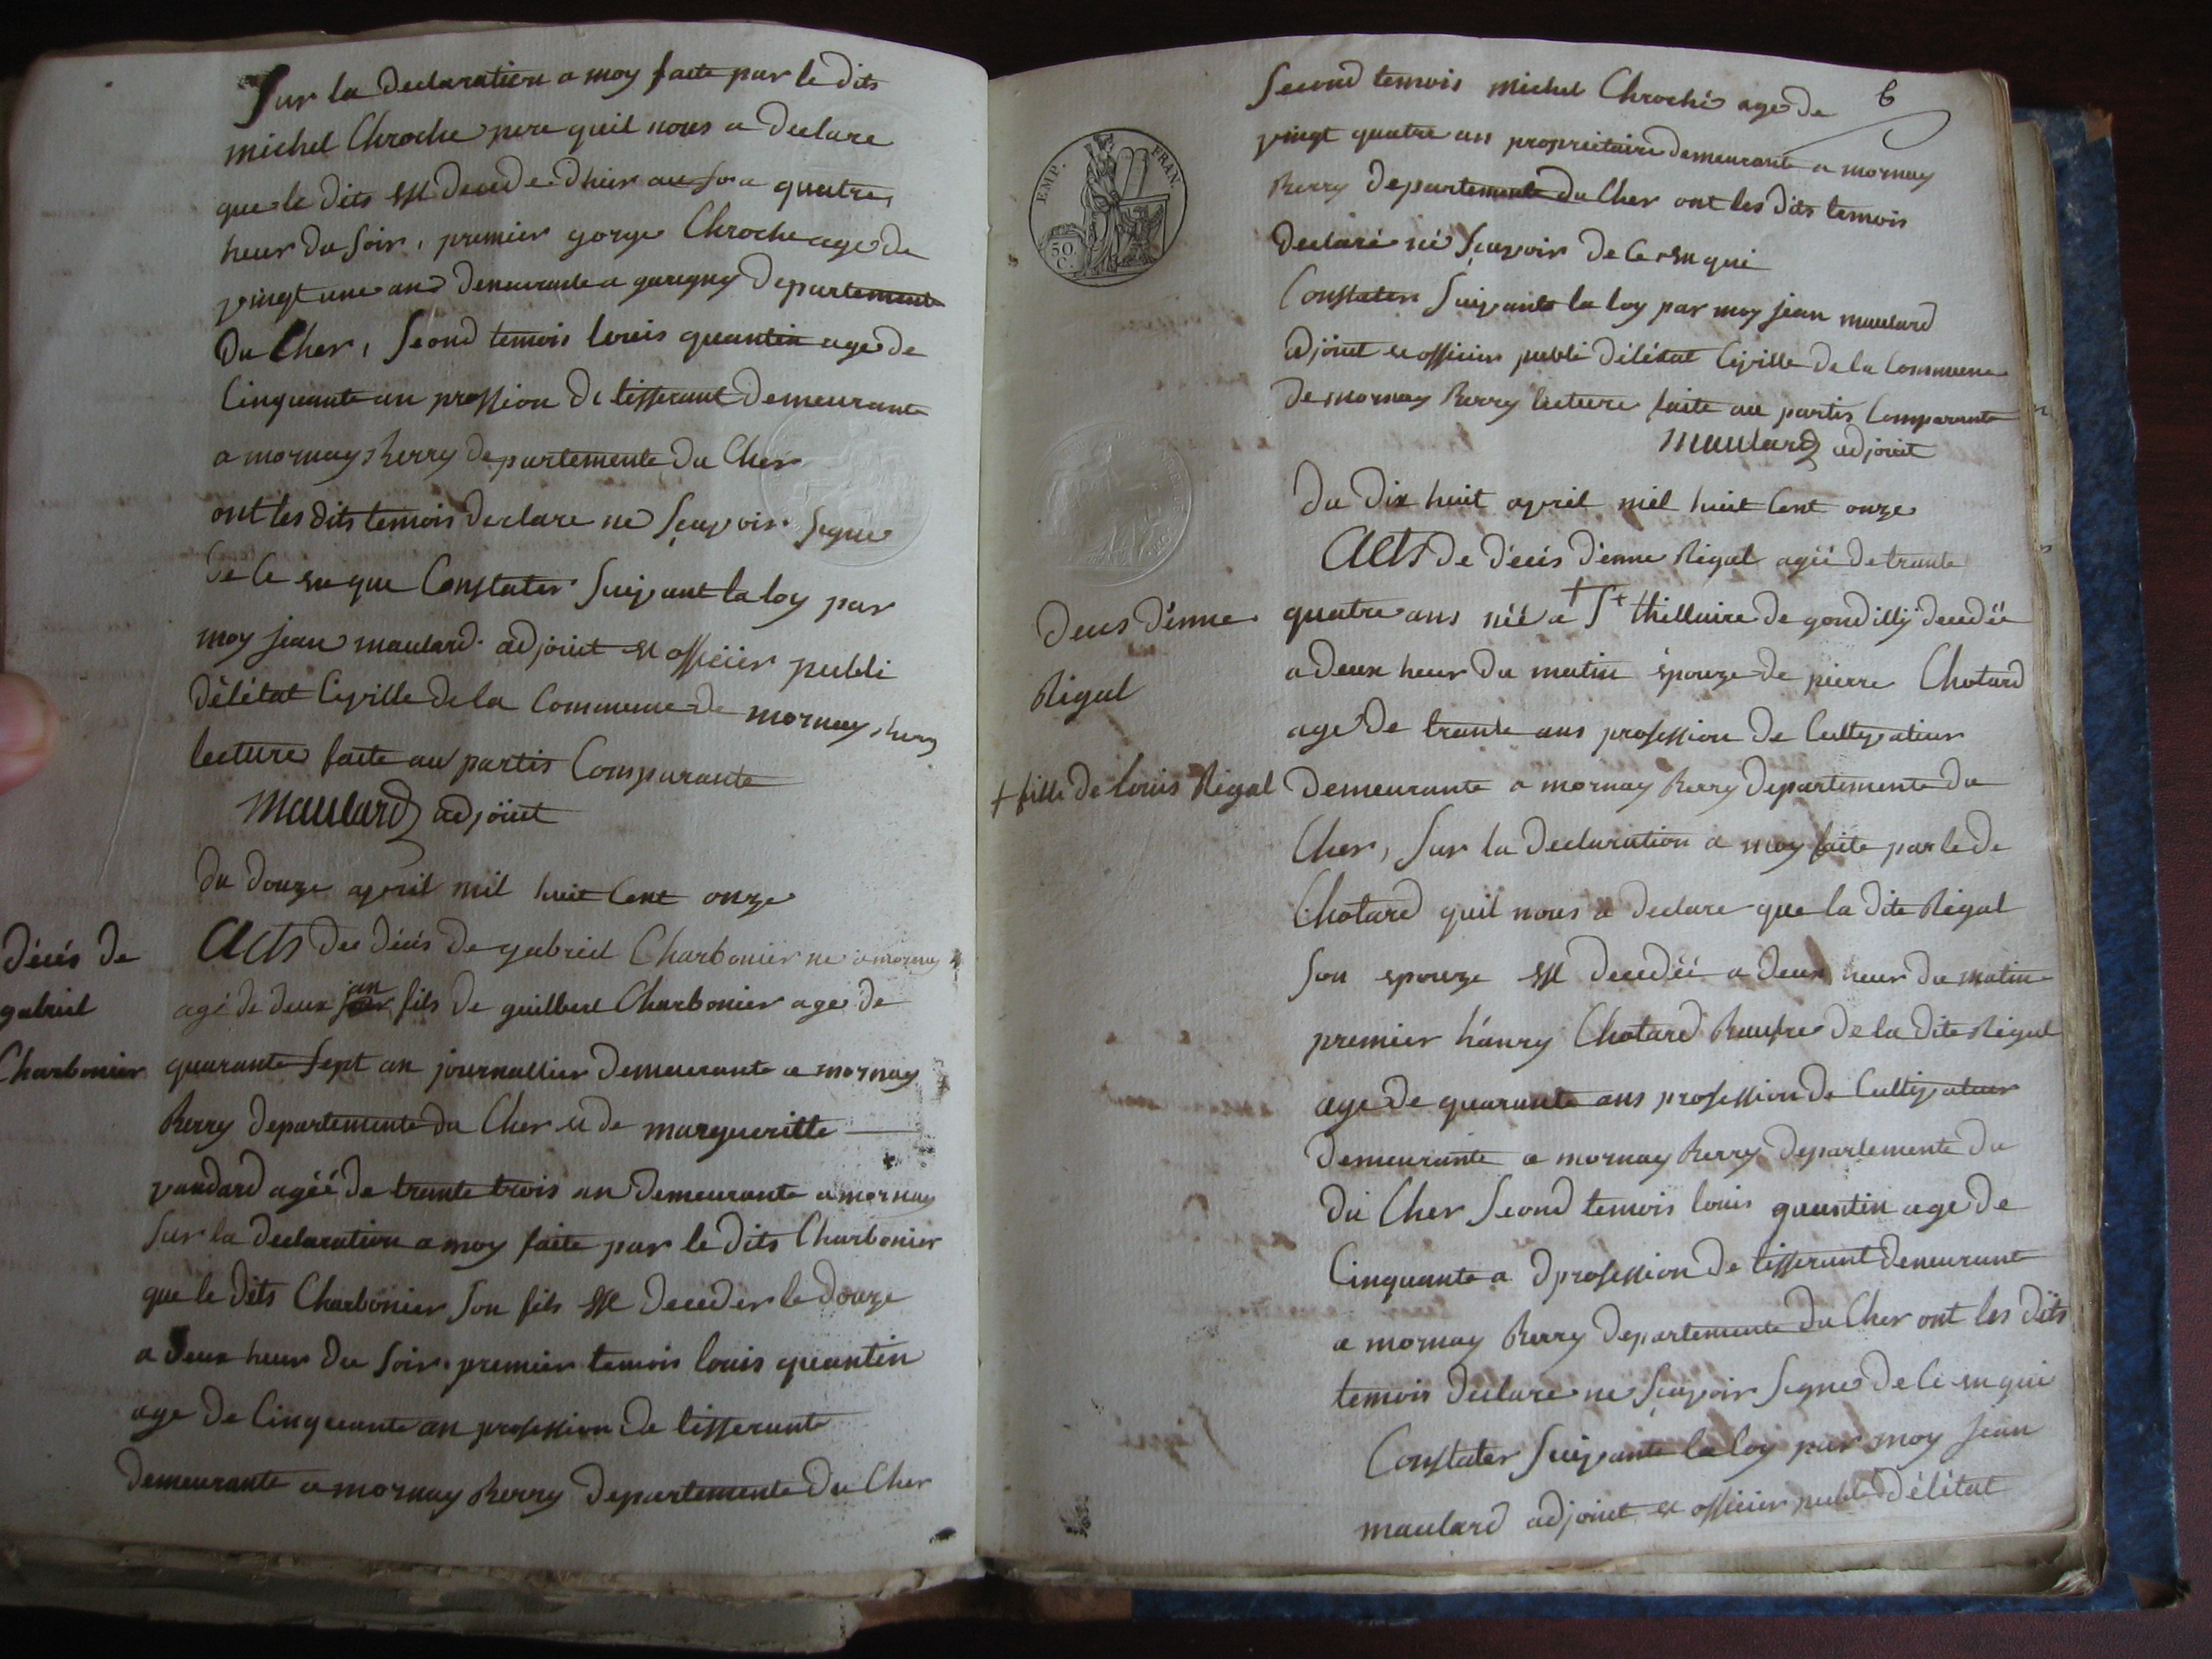 Sur la Declaration a moy faite par le dits
michel Chroche pere quil nous a declare
que le dits est decede dhier au soir a quatre
heur du soir, premier gorge Chroche age de
vingt une and demeurante a garigny departemente
du Cher, second temois louis quantin age de
Cinquante an profsion de tisserant demeurante
a mornay Berry departemente du Cher
ont les dits temois declare ne sçavoir signe
de Ce en que Constater suivant la loy par
moy jean maulard adjoint et officier publi
délétat Civille de la Commune de mornay Berry
lecture faite au partis Comparante
Maulard adjoint
du douze avril mil huit Cent onze
décés de
gabriel
Charbonier
Acts du décés de gabriel Charbonier né a mornay
agé de deux an fils de guilbert Charbonier age de
quarante sept an journallier demeurante a mornay
Berry departemente du Cher et de margueritte
vandard agéé de trante trois an demeurante a mornay
sur la declaration a moy faite par le dits Charbonier
que le dits Charbonier son fils est deceder le douze
a deux heur du soir. premier temois louis quantin
age de Cinquante an profession de tisserante
demeurante a mornay Berry departemente du Cher
6
EMP. FRAN.
50 C.
Second temois michel Chroché age de
vingt quatre an propriétaire demeurante a mornay
Berry departemente du Cher ont les dits temois
declaré né sçavoir de Ce en qui
Constater suivante la loy par moy jean maulard
adjoint et officier publi délétat Civille de la Commune
de mornay Berry lecture faite au partis Comparante
Maulard adjoint
du dix huit avril mil huit Cent onze
Deces d'enne
Rigal
Acts de décés d'enne Rigal agéé de trante
quatre ans néé a + St thillaire de gondilly decedéé
a deux heur du matin épouze de pierre Chotard
age de trante ans profession de Cultivateur
+ fille de louis Rigal
demeurante a mornay Berry departemente du
Cher, sur la declaration a moy faite par le de
Chotard quil nous a declare que la dite Rigal
son epouze est decedéé a deux heur du matin
premier hénry Chotard Baufre de la dite Rigal
age de quarante ans profession de Cultivateur
demeurante a mornay Berry departemente du
du Cher second temois louis quantin age de
Cinquante a d profession de tisserant demeurant
a mornay Berry departemente du Cher ont les dits
temois declare ne sçavoir signe de Ce en qui
Constater suivante la loy par moy jean
maulard adjoint et officier publi délétat